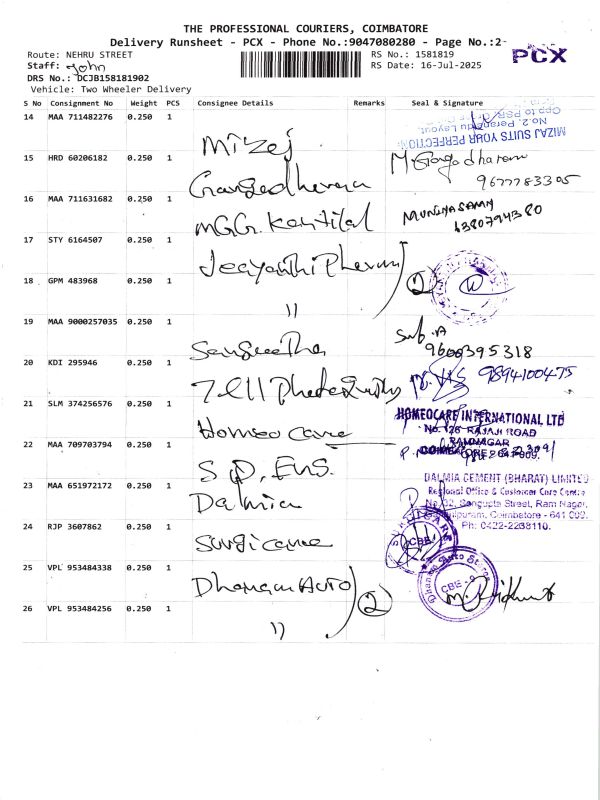 THE PROFESSIONAL COURIERS, COIMBATORE
Delivery Runsheet - PCX - Phone No.:9047080280 - Page No.:2-
Route: NEHRU STREET
RS No.: 1581819
PCX
Staff: John
RS Date: 16-Jul-2025
DRS No.: DCJB158181902
Vehicle: Two Wheeler Delivery
S No Consignment No Weight PCS Consignee Details Remarks Seal & Signature
14 MAA 711482276 0.250 1
MIZAJ SUITS YOUR PERFECTION
Mizej
15 HRD 60206182 0.250 1
9677783305
16 MAA 711631682 0.250 1
MUNIYASAMY
6380794380
17 STY 6164507 0.250 1
18 GPM 483968 0.250 1
2
11
19 MAA 9000257035 0.250 1
Sangeetha
9600395318
20 KDI 295946 0.250 1
9894100475
21 SLM 374256576 0.250 1
Homeo care
HOMEOCARE INTERNATIONAL LTD
No. 126 RAJAJI ROAD
RAMNAGAR
22 MAA 709703794 0.250 1
23 MAA 651972172 0.250 1
Dalmia
DALMIA CEMENT (BHARAT) LIMITED
Regional Office & Customer Care Centre
Sengupta Street, Ram Nagar,
Coimbatore - 641 009.
Ph: 0422-2238110.
24 RJP 3607862 0.250 1
Surgicare
CBE
25 VPL 953484338 0.250 1
Dhanam Auto
2
Dhanam Auto Stores
CBE - 9
26 VPL 953484256 0.250 1
11